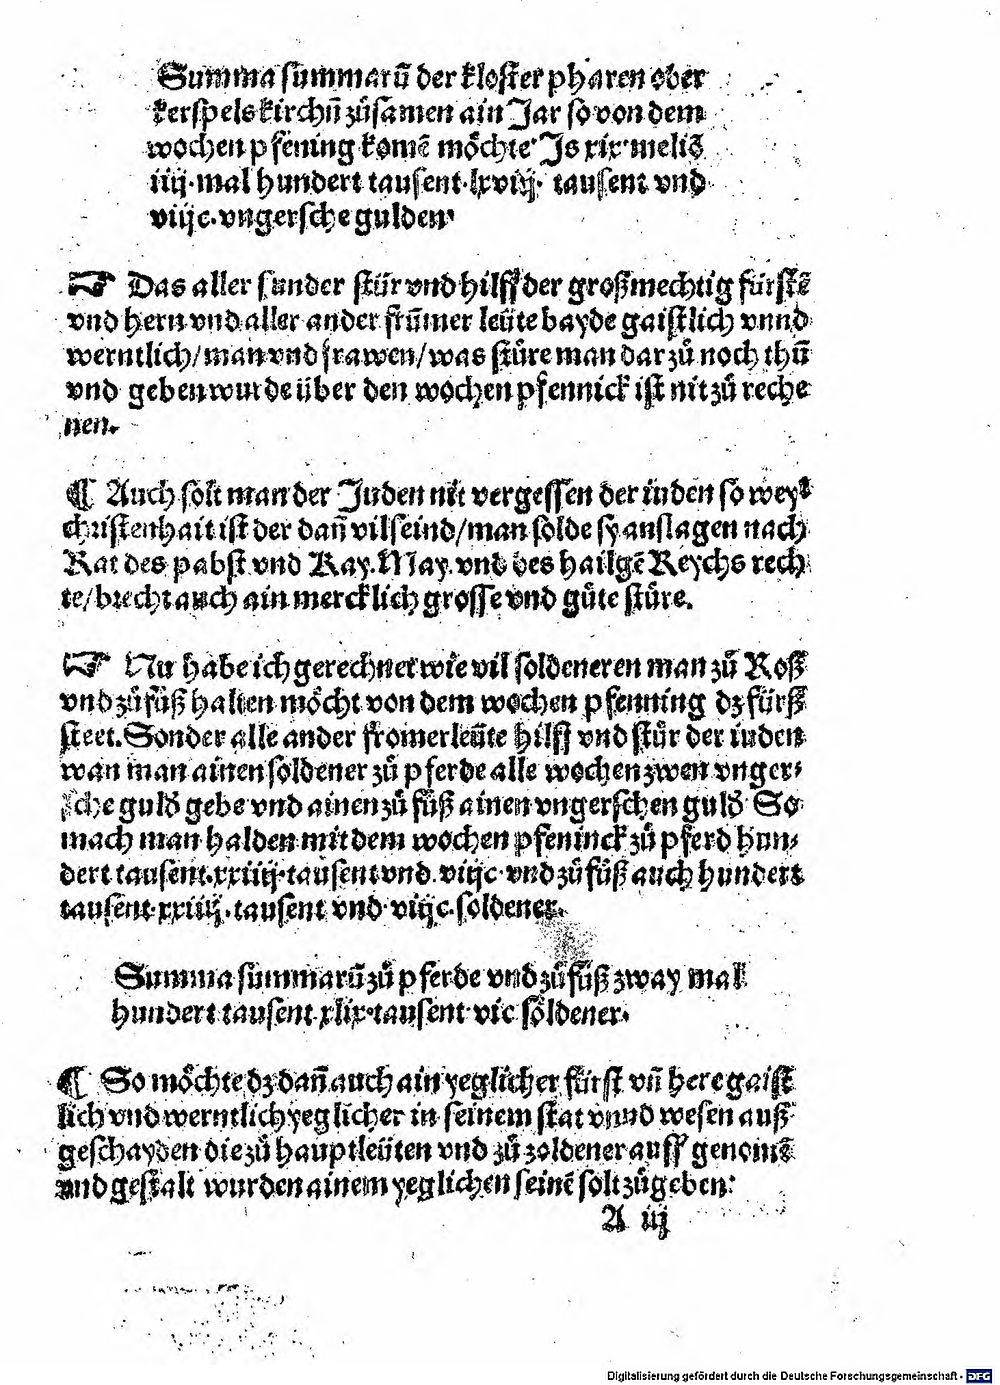 Summa summarū der kloster pharen oder
kerspels kirchn̄ zůsamen ain Jar so von dem
wochen pfening komē möchte Is xix melió
iiij·mal hundert tausent·lxviij· tausent vnd
viijc·vngersche gulden·
☞ Das aller sunder stür vnd hilff der großmechtig fürstē
vnd hern vnd aller ander frūmer leüte bayde gaistlich vnnd
werntlich/man vnd frawen/was stüre man dar zů noch thū
vnd geben wurde über den wochen pfennick ist nit zů reche
nen.
¶ Auch solt man der Juden nit vergessen der iuden so weyt
christenhait ist der dan̄ vil seind/man solde sy anslagen nach
Rat des pabst vnd Kay. May. vnd des hailgē Reychs rech
te/brecht auch ain mercklich grosse vnd gůte stüre.
☞ Nu habe ich gerechnet wie vil soldeneren man zů Roß
vnd zů fůß halten möcht von dem wochen pfenning dz fürß
steet. Sonder alle ander fromer leüte hilff vnd stür der iuden
wan man ainen soldener zů pferde alle wochen zwen vnger⸗
sche guld gebe vnd ainen zů fůß ainen vngerschen guld So
mach man halden mit dem wochen pfeninck zů pferd hun⸗
dert tausent·xxiiij·tausent vnd·viijc·vnd zů fůß auch hundert
tausent·xxiiij·tausent vnd·viijc·soldener.
Summa summarū zů pferde vnd zů fůß zway mal
hundert tausent·xlix·tausent·vic söldener·
¶ So möchte dz dan̄ auch ain yeglicher fürst vn̄ here gaist
lich vnd werntlich yeglicher in seinem stat vnnd wesen auß
geschayden die zů hauptleüten vnd zů zoldener auff genomē
vnd gestalt wurden ainem yeglichen seinē solt zůgeben:
A iij
Digitalisierung gefördert durch die Deutsche Forschungsgemeinschaft - DFG